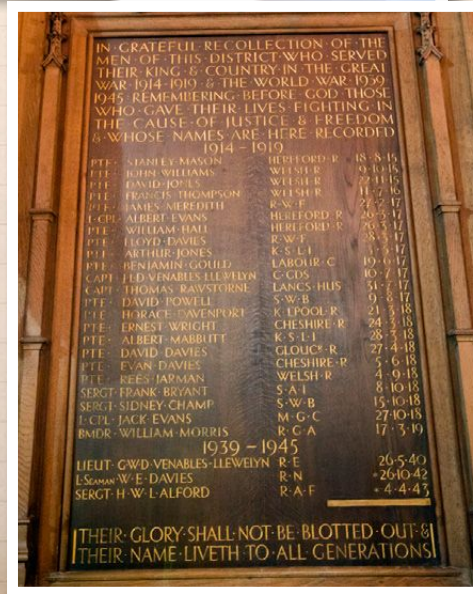 IN·GRATEFUL·RECOLLECTION·OF·THE
MEN·OF·THIS·DISTRICT·WHO·SERVED
THEIR·KING·&·COUNTRY·IN·THE·GREAT
WAR·1914-1919·&·THE·WORLD·WAR·1939
1945·REMEMBERING·BEFORE·GOD·THOSE
WHO·GAVE·THEIR·LIVES·FIGHTING·IN
THE·CAUSE·OF·JUSTICE·&·FREEDOM
&·WHOSE·NAMES·ARE·HERE·RECORDED
1914-1919
PTE· STANLEY·MASON HEREFORD·R 18·8·15
PTE· JOHN·WILLIAMS WELSH·R 9·10·15
PTE· DAVID· WELSH·R 22·11·15
PTE· FRANCIS·THOMPSON WELSH·R 16
PTE· JAMES·MEREDITH R·W·F 17
L·CPL·ALBERT·EVANS HEREFORD·R 26·3·17
PTE· WILLIAM·HALL HEREFORD·R 26·3·17
PTE· LLOYD·DAVIES R·W·F 17
PTE· ARTHUR·JONES K·S·L·I 17
PTE· BENJAMIN·GOULD LABOUR·C 17
CAPT· VENABLES·LLEWELYN C·GDS 10·7·17
CAPT· THOMAS·RAWSTORNE LANCS·HUS 31·7·17
PTE· DAVID·POWELL S·W·B 9·8·17
PTE· HORACE·DAVENPORT K·LPOOL·R 21·3·18
PTE· ERNEST·WRIGHT CHESHIRE·R 24·3·18
PTE· ALBERT·MABBUTT K·S·L·I 28·3·18
PTE· DAVID·DAVIES GLOUCR·R 27·4·18
PTE· EVAN·DAVIES CHESHIRE·R 5·6·18
PTE· REES·JARMAN WELSH·R 4·9·18
SERGT·FRANK·BRYANT S·A·I 8·10·18
SERGT·SIDNEY·CHAMP S·W·B 15·10·18
L·CPL·JACK·EVANS M·G·C 27·10·18
BMDR·WILLIAM·MORRIS R·G·A 17·3·19
1939-1945
LIEUT·GWD·VENABLES-LLEWELYN R·E 26·5·40
L·SEAMAN·W·E·DAVIES R·N *26·10·42
SERGT·H·W·L·ALFORD R·A·F *4·4·43
THEIR·GLORY·SHALL·NOT·BE·BLOTTED·OUT·&
THEIR·NAME·LIVETH·TO·ALL·GENERATIONS